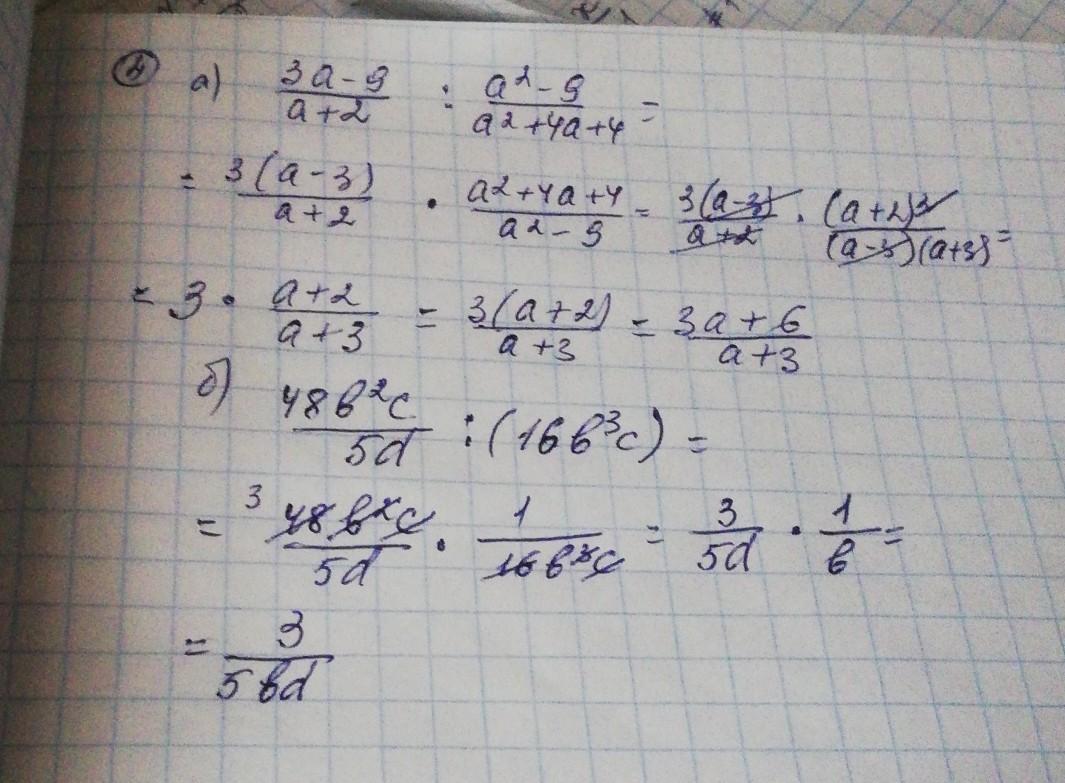 ④ а) (3a-9)/(a+2) : (a²-9)/(a²+4a+4) =
= 3(a-3)/(a+2) · (a²+4a+4)/(a²-9) = 3(a-3)/(a+2) · (a+2)²/((a-3)(a+3)) =
= 3 · (a+2)/(a+3) = 3(a+2)/(a+3) = (3a+6)/(a+3)
б) 48b²c/5d : (16b³c) =
= ³ 48b²c/5d · 1/(16b³c) = 3/5d · 1/b =
= 3/5bd